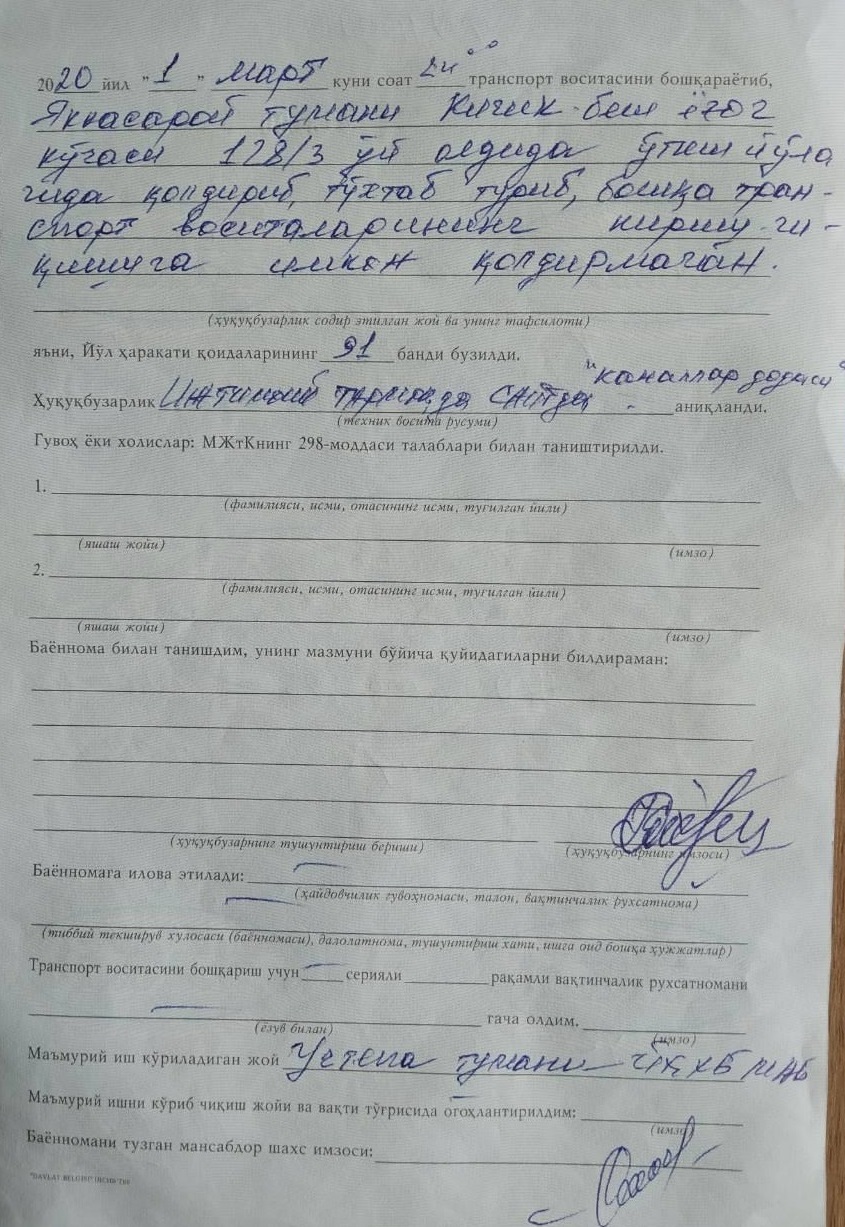 2020 йил "1" март куни соат 24⁰⁰ транспорт воситасини бошқараётиб,
Яккасарой тумани Кичик-беш ёғоч
кўчаси 128/3 уй олдида ўтиш йўла
гида қолдириб, тўхтаб туриб, бошқа тран-
спорт воситаларининг кириш-чи-
қишига имкон қолдирмаган.
(ҳуқуқбузарлик содир этилган жой ва унинг тафсилоти)
яъни, Йўл ҳаракати қоидаларининг 91 банди бузилди.
"каналлар додаси"
Ҳуқуқбузарлик Ижтимоий тармоқда сайтда - аниқланди.
(техник восита русуми)
Гувоҳ ёки холислар: МЖтКнинг 298-моддаси талаблари билан таништирилди.
1.
(фамилияси, исми, отасининг исми, туғилган йили)
(яшаш жойи) (имзо)
2.
(фамилияси, исми, отасининг исми, туғилган йили)
(яшаш жойи) (имзо)
Баённома билан танишдим, унинг мазмуни бўйича қуйидагиларни билдираман:
(ҳуқуқбузарнинг тушунтириш бериши) (ҳуқуқбузарнинг имзоси)
Баённомага илова этилади:
(ҳайдовчилик гувоҳномаси, талон, вақтинчалик рухсатнома)
(тиббий текширув хулосаси (баённомаси), далолатнома, тушунтириш хати, ишга оид бошқа ҳужжатлар)
Транспорт воситасини бошқариш учун серияли рақамли вақтинчалик рухсатномани
гача олдим.
(ёзув билан) (имзо)
Маъмурий иш кўриладиган жой Учтепа тумани ЙҲХБ МАБ
Маъмурий ишни кўриб чиқиш жойи ва вақти тўғрисида огоҳлантирилдим:
(имзо)
Баённомани тузган мансабдор шахс имзоси: